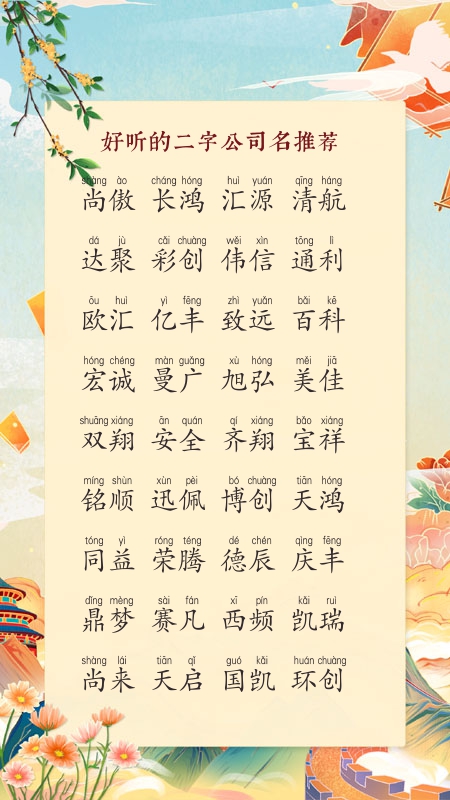 好听的二字公司名推荐
shàng ào cháng hóng huì yuán qīng háng
尚傲 长鸿 汇源 清航
dá jù cǎi chuàng wěi xìn tōng lì
达聚 彩创 伟信 通利
ōu huì yì fēng zhì yuǎn bǎi kē
欧汇 亿丰 致远 百科
hóng chéng màn guǎng xù hóng měi jiā
宏诚 曼广 旭弘 美佳
shuāng xiáng ān quán qí xiáng bǎo xiáng
双翔 安全 齐翔 宝祥
míng shùn xùn pèi bó chuàng tiān hóng
铭顺 迅佩 博创 天鸿
tóng yì róng téng dé chén qìng fēng
同益 荣腾 德辰 庆丰
dǐng mèng sài fán xī pín kǎi ruì
鼎梦 赛凡 西频 凯瑞
shàng lái tiān qǐ guó kǎi huán chuàng
尚来 天启 国凯 环创